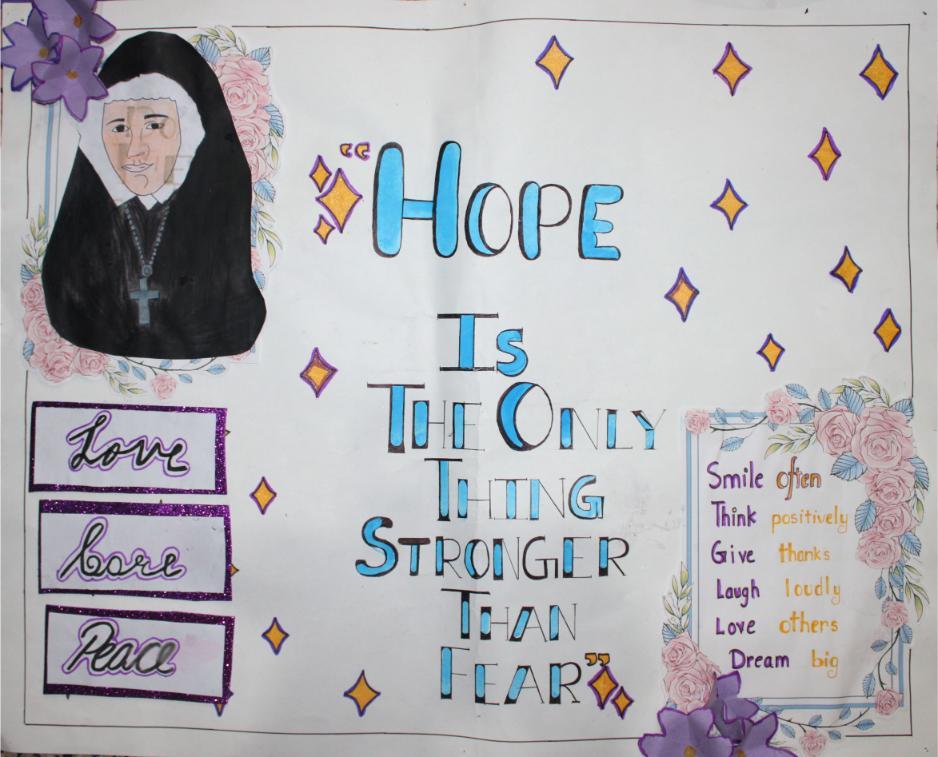 “HOPE
IS
THE ONLY
THING
STRONGER
THAN
FEAR”
Love
Care
Peace
Smile often
Think positively
Give thanks
Laugh loudly
Love others
Dream big